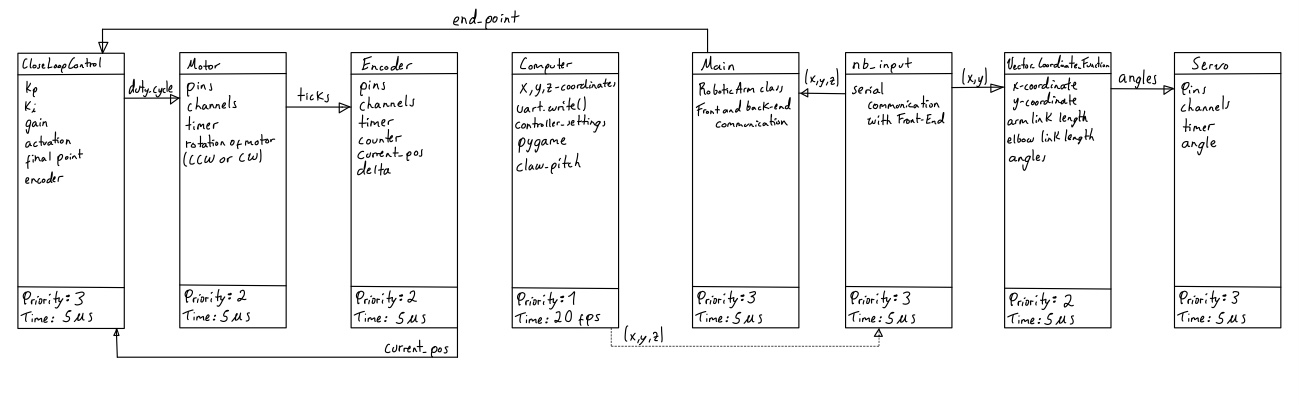 end_point
CloseLoopControl
Kp
Ki
gain
actuation
final point
encoder
Priority: 3
Time: 5 μs
duty.cycle
Motor
pins
channels
timer
rotation of motor
(CCW or CW)
Priority: 2
Time: 5 μs
ticks
Encoder
pins
channels
timer
counter
current_pos
delta
Priority: 2
Time: 5 μs
current_pos
Computer
x,y,z-coordinates
uart.write()
controller_settings
pygame
claw_pitch
Priority: 1
Time: 20 fps
(x,y,z)
Main
RoboticArm class
Front and back-end
communication
Priority: 3
Time: 5 μs
(x,y,z)
nb_input
serial
communication
with Front-End
Priority: 3
Time: 5 μs
(x,y)
Vector_Coordinate_Function
x-coordinate
y-coordinate
arm link length
elbow link length
angles
Priority: 2
Time: 5 μs
angles
Servo
Pins
channels
timer
angle
Priority: 3
Time: 5 μs